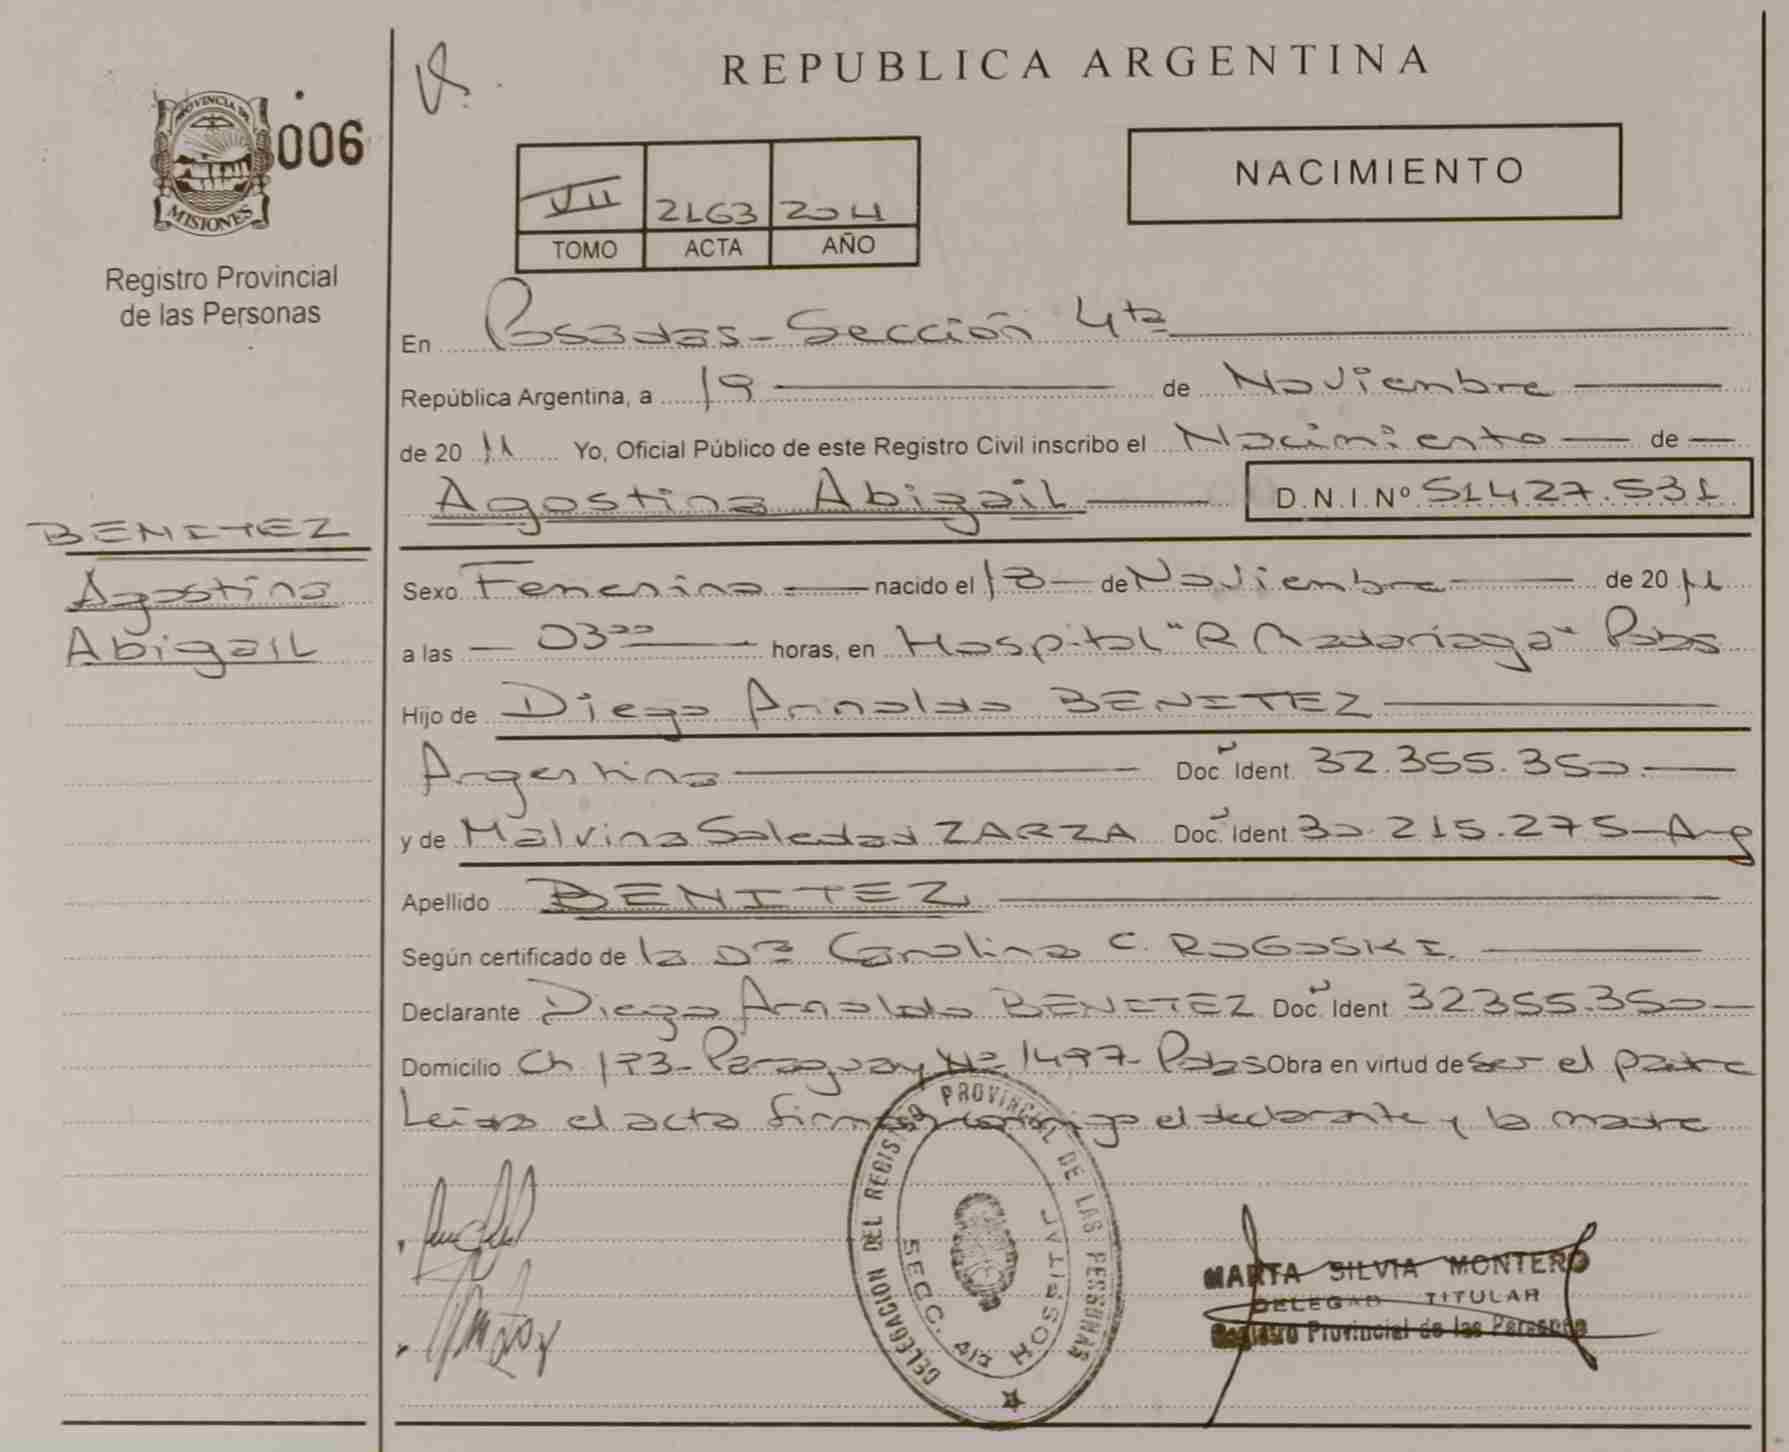 REPUBLICA ARGENTINA
PROVINCIA DE
MISIONES
006
Registro Provincial
de las Personas
VII 2163 2011
TOMO ACTA AÑO
NACIMIENTO
En Posadas - Sección 4ta
República Argentina, a 19 de Noviembre
de 2011 Yo, Oficial Público de este Registro Civil inscribo el Nacimiento de
Agostina Abigail D.N.I.Nº 51427.531
BENITEZ
Agostina
Abigail
Sexo Femenino nacido el 18 de Noviembre de 2011
a las 03ºº horas, en Hospital "R Madariaga" Pdas
Hijo de Diego Arnaldo BENITEZ
Argentino Doc. Ident. 32.355.350.
y de Malvina Soledad ZARZA Doc. Ident 30.215.275-Arg
Apellido BENITEZ
Según certificado de la Dra Carolina C. ROGOSKI.
Declarante Diego Arnaldo BENITEZ Doc. Ident 32355.350
Domicilio Ch 193- Paraguay Nº 1497- Pdas Obra en virtud de ser el padre
Leída el acta firman conmigo el declarante y la madre
DELEGACION DEL REGISTRO PROVINCIAL DE LAS PERSONAS
SECC. 4ta HOSPITAL
MARTA SILVIA MONTERO
DELEGADO TITULAR
Registro Provincial de las Personas